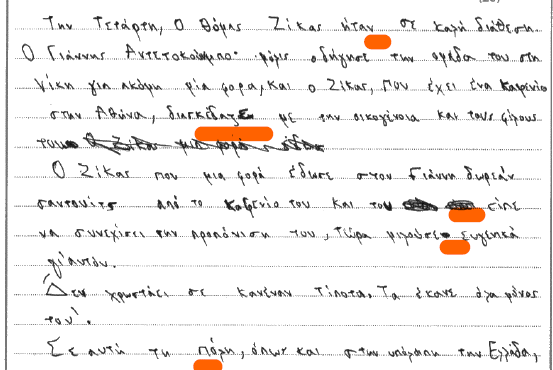 Την Τετάρτη, Ο Θόμας Ζίκας ήταν σε καλή διάθεση.
Ο Γιάννης Αντετοκούμπο μόλις οδήγησε την ομάδα του στη
νίκη για ακόμη μία φορα, και ο Ζίκας, που έχει ένα καφενίο
στην Αθήνα, διασκέδαζε με την οικογένεια και τους φίλους
του
Ο Ζίκας που μια φορά έδωσε στον Γιάννη δωρεάν
σαντουιτς από το καφενίο του και του είπε
να συνεχίσει την προπόνιση του, τώρα μιλούσε ευγενικά
γι'αυτόν.
Δεν χρωστάει σε κανέναν τίποτα. Τα έκανε όλα μόνος
του'.
Σε αυτή τη πόλη, όπως και στην υπόλοιπη την Ελλάδα,